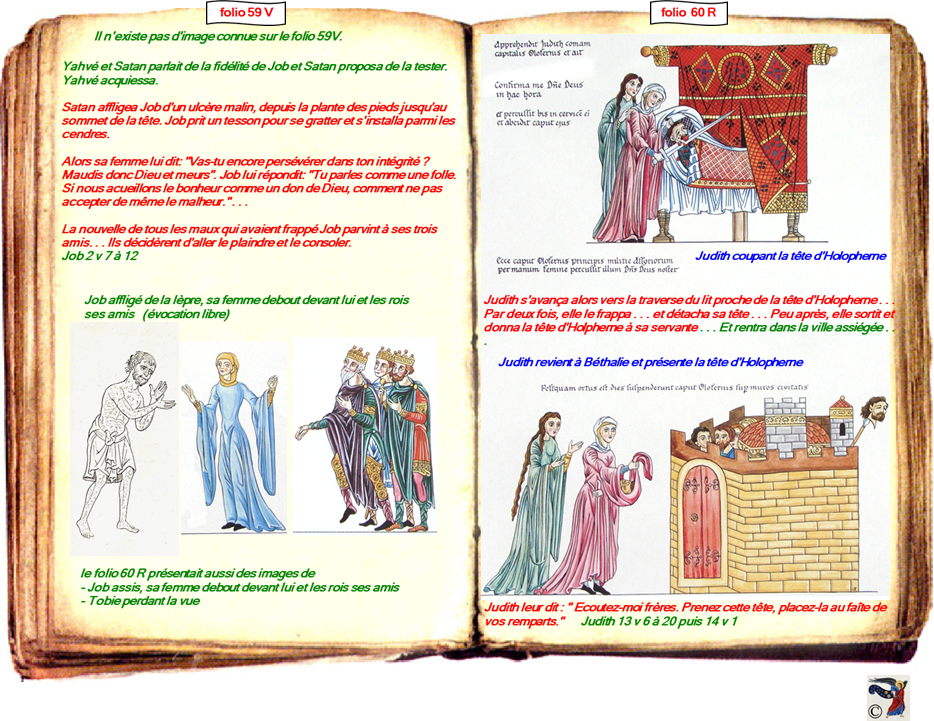 folio 59 V
Il n'existe pas d'image connue sur le folio 59V.
Yahvé et Satan parlait de la fidélité de Job et Satan proposa de la tester.
Yahvé acquiessa.
Satan affligea Job d'un ulcère malin, depuis la plante des pieds jusqu'au
sommet de la tête. Job prit un tesson pour se gratter et s'installa parmi les
cendres.
Alors sa femme lui dit: "Vas-tu encore persévérer dans ton intégrité ?
Maudis donc Dieu et meurs". Job lui répondit: "Tu parles comme une folle.
Si nous acueillons le bonheur comme un don de Dieu, comment ne pas
accepter de même le malheur." . . .
La nouvelle de tous les maux qui avaient frappé Job parvint à ses trois
amis. . . Ils décidèrent d'aller le plaindre et le consoler.
Job 2 v 7 à 12
Job affligé de la lèpre, sa femme debout devant lui et les rois
ses amis (évocation libre)
le folio 60 R présentait aussi des images de
- Job assis, sa femme debout devant lui et les rois ses amis
- Tobie perdant la vue
folio 60 R
Apprehendit Judith comam
capitis Olofernis et ait
Confirma me Dñe Deus
in hac hora
et percussit bis in cervicē ei
et abcidit caput ejus
Ecce caput Olofernis principis militie Assyriorum
per manum femine percussit illum Dñs Deus noster
Judith coupant la tête d'Holopherne
Judith s'avança alors vers la traverse du lit proche de la tête d'Holopherne . . .
Par deux fois, elle le frappa . . . et détacha sa tête . . . Peu après, elle sortit et
donna la tête d'Holpherne à sa servante . . . Et rentra dans la ville assiégée . .
.
Judith revient à Béthalie et présente la tête d'Holopherne
Postquam ortus est dies suspenderunt caput Olofernis sup muros civitatis
Judith leur dit : " Ecoutez-moi frères. Prenez cette tête, placez-la au faîte de
vos remparts." Judith 13 v 6 à 20 puis 14 v 1
©